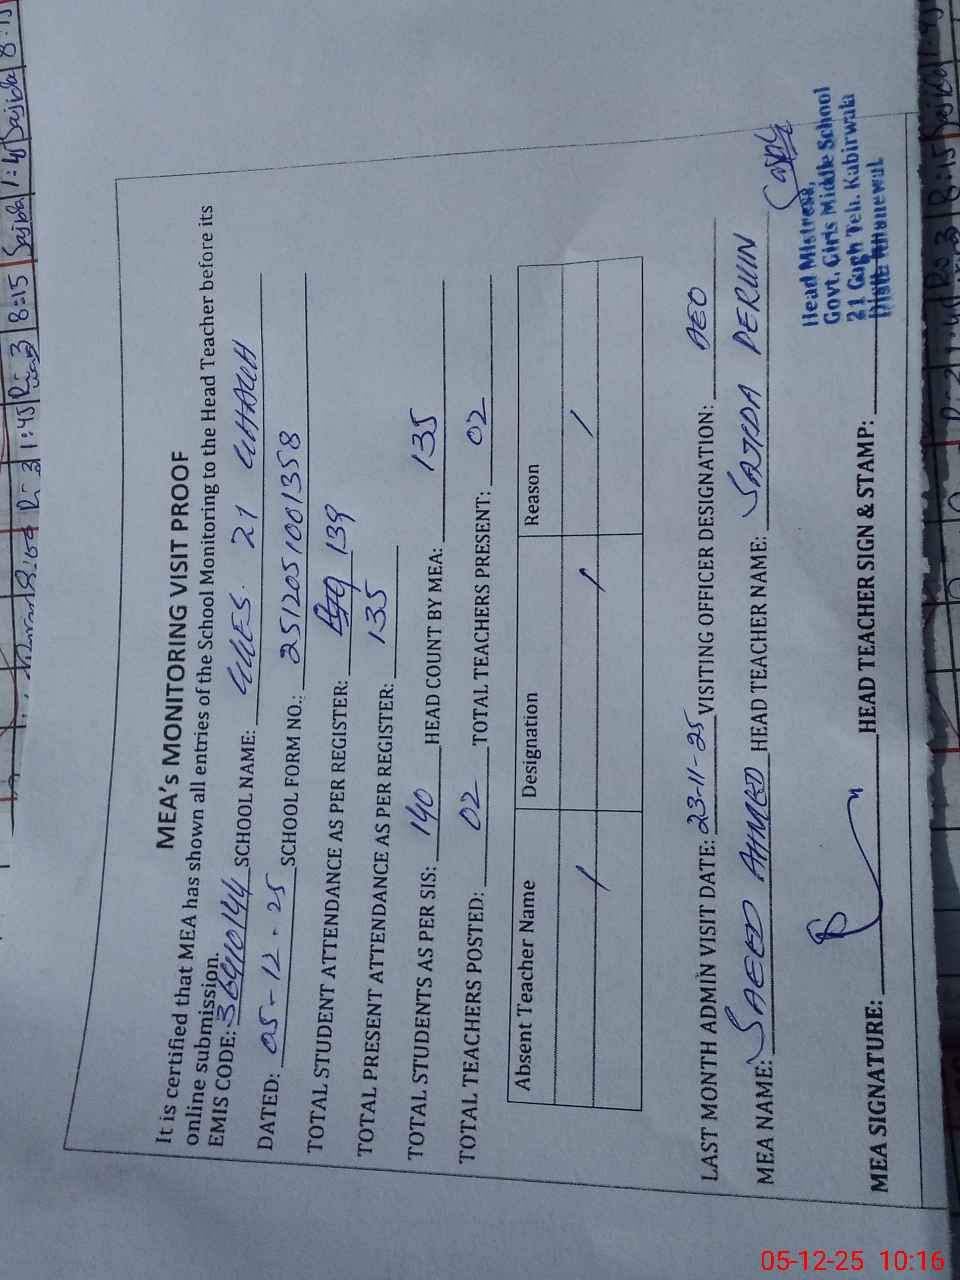 MEA's MONITORING VISIT PROOF
It is certified that MEA has shown all entries of the School Monitoring to the Head Teacher before its
online submission.
EMIS CODE: 36910144 SCHOOL NAME: GGES. 21 GHAGH
DATED: 05-12-25 SCHOOL FORM NO.: 2512051001358
TOTAL STUDENT ATTENDANCE AS PER REGISTER: 139
TOTAL PRESENT ATTENDANCE AS PER REGISTER: 135
TOTAL STUDENTS AS PER SIS: 140 HEAD COUNT BY MEA: 135
TOTAL TEACHERS POSTED: 02 TOTAL TEACHERS PRESENT: 02
Absent Teacher Name Designation Reason
/ / /
LAST MONTH ADMIN VISIT DATE: 23-11-25 VISITING OFFICER DESIGNATION: AEO
MEA NAME: SAEED AHMED HEAD TEACHER NAME: SAJIDA PERVIN
Head Mistress,
Govt. Girls Middle School
21 Gagh Teh. Kabirwala
Distt. Khanewal.
MEA SIGNATURE: HEAD TEACHER SIGN & STAMP:
1:45 8:15 Sajida 1:45 Sajida 8:15
8:15 Sajida 1:45
05-12-25 10:16